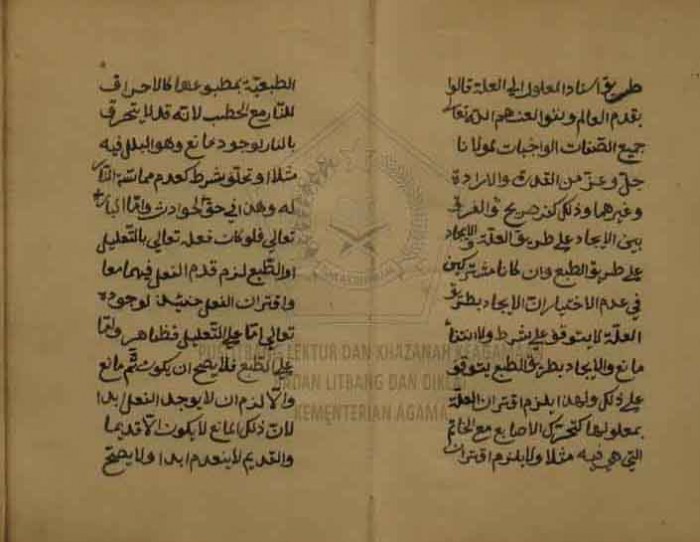 طريق اسناد المعلول الى العلة قالوا
بقدم العالم ونفوا لعنهم الله تعالى
جميع الصفات الواجبات لمولانا
جل وعز من القدرة والارادة
وغيرهما وذلك كفر صريح والفرق
بين الايجاد على طريق العلة والايجاد
على طريق الطبع وان كانا مشتركين
في عدم الاختيار ان الايجاد بطريق
العلة لا يتوقف على شرط ولا انتفاء
مانع والايجاد بطريق الطبع يتوقف
على ذلك ولهذا يلزم اقتران العلة
بمعلولها كتحرك الاصابع مع الخاتم
التي هي فيه مثلا ولا يلزم اقتران
الطبعية بمطبوعها كالاحراق
للنار مع الحطب لانه قد لا يتحرق
بالنار لوجود مانع وهو البلل فيه
مثلا او تخلق شرط كعدم مماسة النار
له وهذا في حق الحوادث واما البارئ
تعالى فلو كان فعله تعالى بالتعليل
او الطبع لزم قدم الفعل فيهما معا
واقتران الفعل حينئذ لوجوده
تعالى اما على التعليل فظاهر واما
على الطبع فلا يصح ان يكون ثم مانع
والا لزم ان لا يوجد الفعل ابدا
لان ذلك المانع لا يكون الا قديما
والقديم لا ينعدم ابدا ولا يصح
PUSLITBANG LEKTUR DAN KHAZANAH KEAGAMAAN
BADAN LITBANG DAN DIKLAT
KEMENTERIAN AGAMA